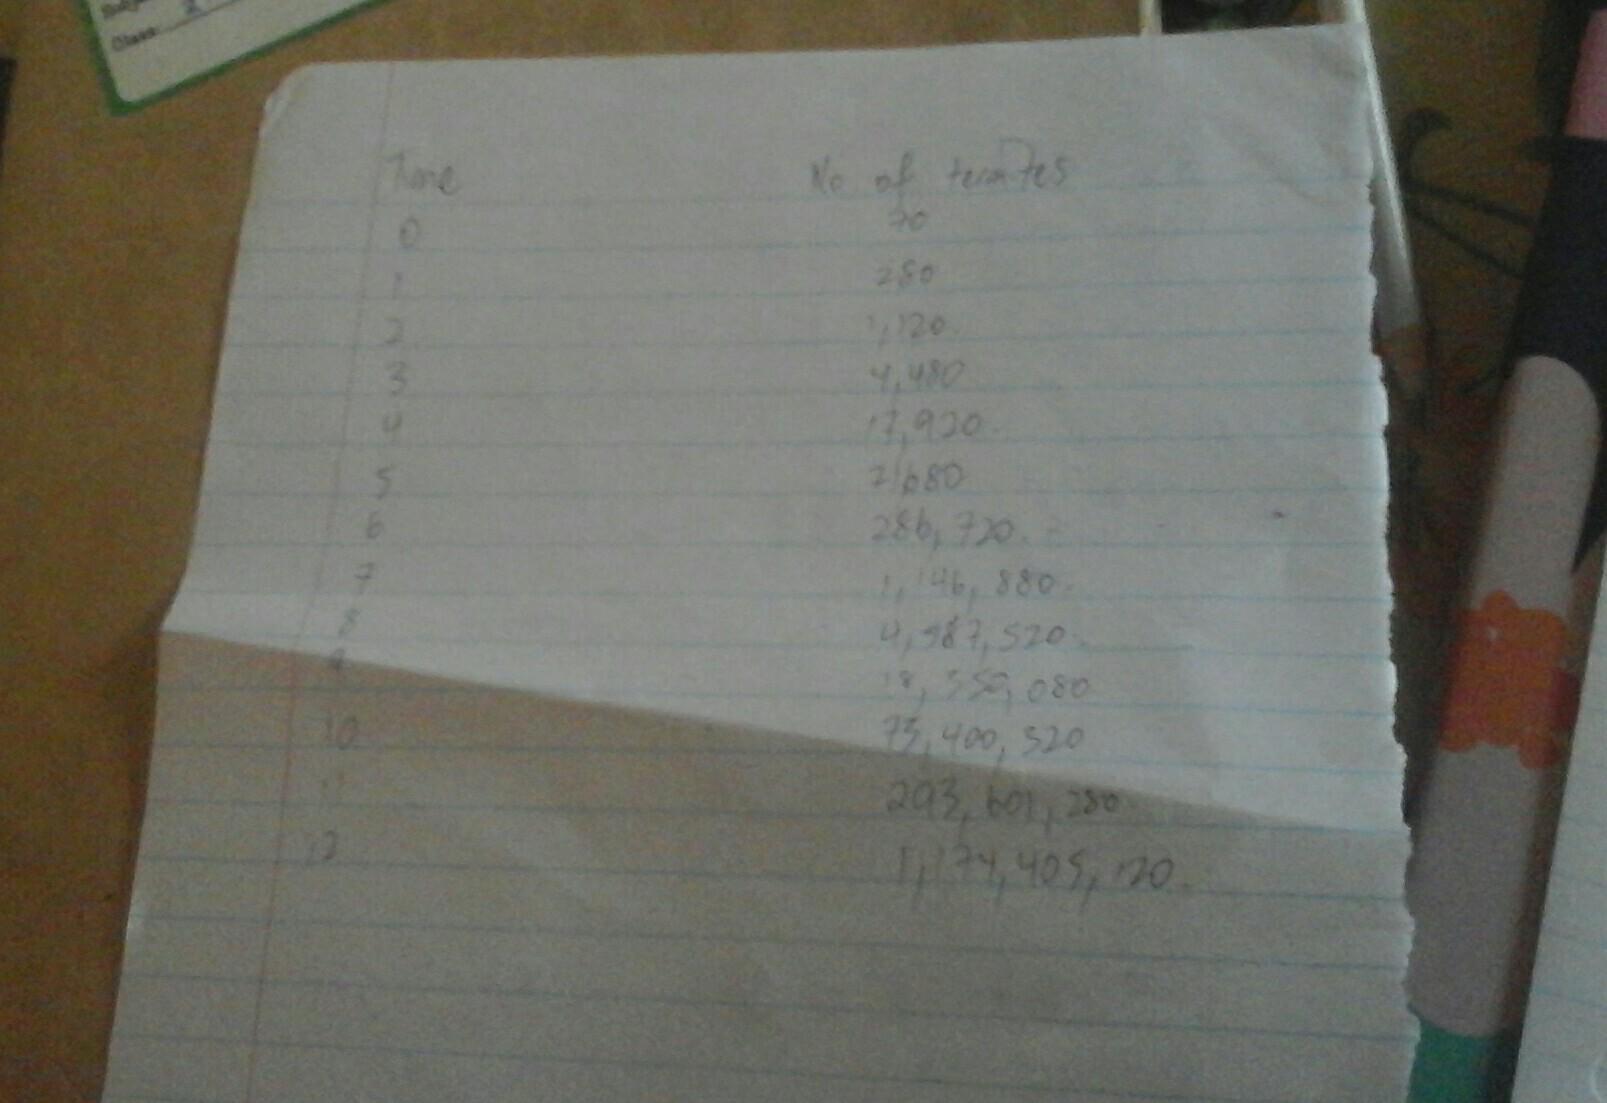 Class:
Time No of termites
0 70
1 280
2 1,120
3 4,480
4 17,920
5 71680
6 286,720
7 1,146,880
8 4,587,520
9 18,350,080
10 73,400,320
11 293,601,280
12 1,174,405,120